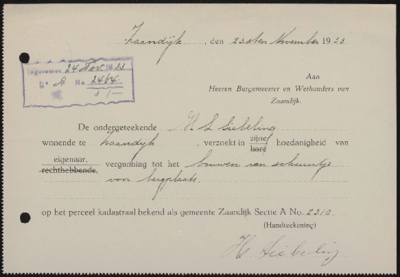 Zaandijk, den 23sten November 1933
Ingekomen 24 Nov. 1933
No. 2464
Aan
Heeren Burgemeester en Wethouders van
Zaandijk.
De ondergeteekende H. S. Siebeling
wonende te Zaandijk, verzoekt in zijne/hare hoedanigheid van
eigenaar,
rechthebbende, vergunning tot het bouwen van schuurtje
voor bergplaats.
op het perceel kadastraal bekend als gemeente Zaandijk Sectie A No. 2310
(Handteekening)
H. Siebeling